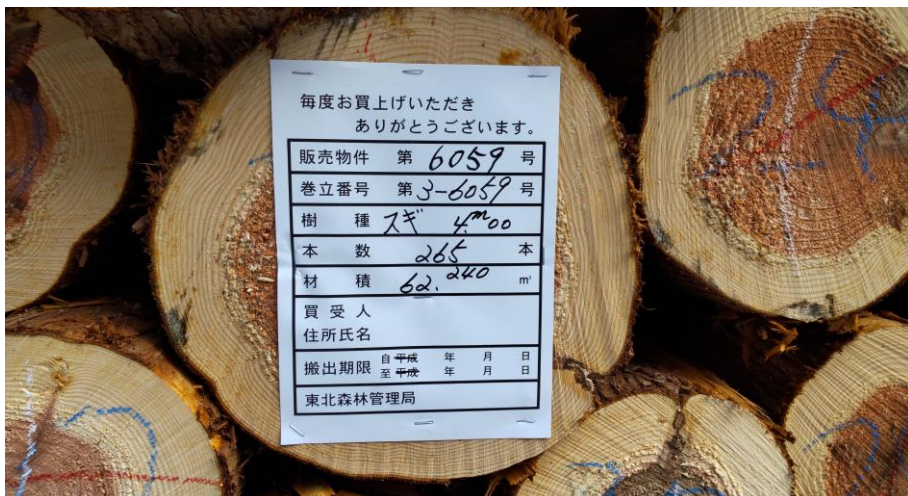 毎度お買上げいただき
ありがとうございます。
販売物件 第 6059 号
巻立番号 第 3-6059 号
樹種 スギ 4.m00
本数 265 本
材積 62.240 m³
買受人
住所氏名
搬出期限 自 平成 年 月 日
至 平成 年 月 日
東北森林管理局